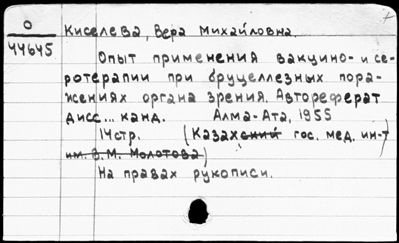 О
44645
Киселева, Вера Михайловна.
Опыт применения вакцино- и се-
ротерапии при бруцеллезных пора-
жениях органа зрения. Автореферат
дисс... канд. Алма-Ата, 1955
14стр. (Казахский гос. мед. ин-т
им. В.М. Молотова)
На правах рукописи.